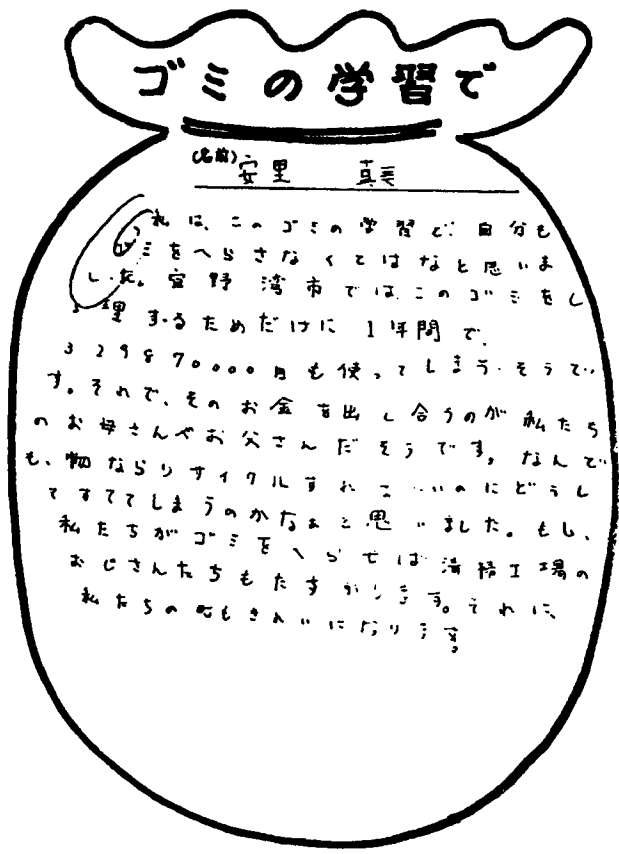 ゴミの学習で
(名前) 安里 真美
私は、このゴミの学習で、自分も
ゴミをへらさなくてはなと思いま
した。宜野湾市では、このゴミをし
ょ理するためだけに1年間で、
329870000円も使ってしまうそうで
す。それで、そのお金を出し合うのが私たち
のお母さんやお父さんだそうです。なんで
も、物ならリサイクルすれば いいのにどうし
てすててしまうのかなあと思いました。もし、
私たちがゴミをへらせば清掃工場の
おじさんたちもたすかります。それに、
私たちの もきれいになります。